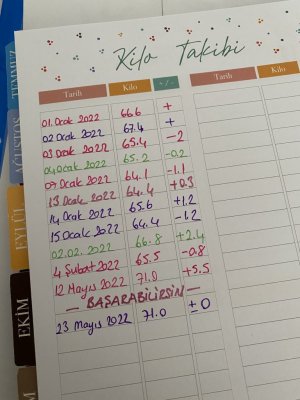 Kilo Takibi
Tarih Kilo + / - Tarih Kilo
01.Ocak 2022 66.6 +
02 Ocak 2022 67.4 +
03 Ocak 2022 65.4 -2
04 Ocak 2022 65.2 -0.2
09 Ocak 2022 64.1 -1.1
13 Ocak 2022 64.4 +0.3
14 Ocak 2022 65.6 +1.2
15 Ocak 2022 64.4 -1.2
02.02. 2022 66.8 +2.4
4 Şubat 2022 65.5 -0.8
12 Mayıs 2022 71.0 +5.5
— BAŞARABİLİRSİN —
23 Mayıs 2022 71.0 ± 0
TEMMUZ
AĞUSTOS
EYLÜL
EKİM